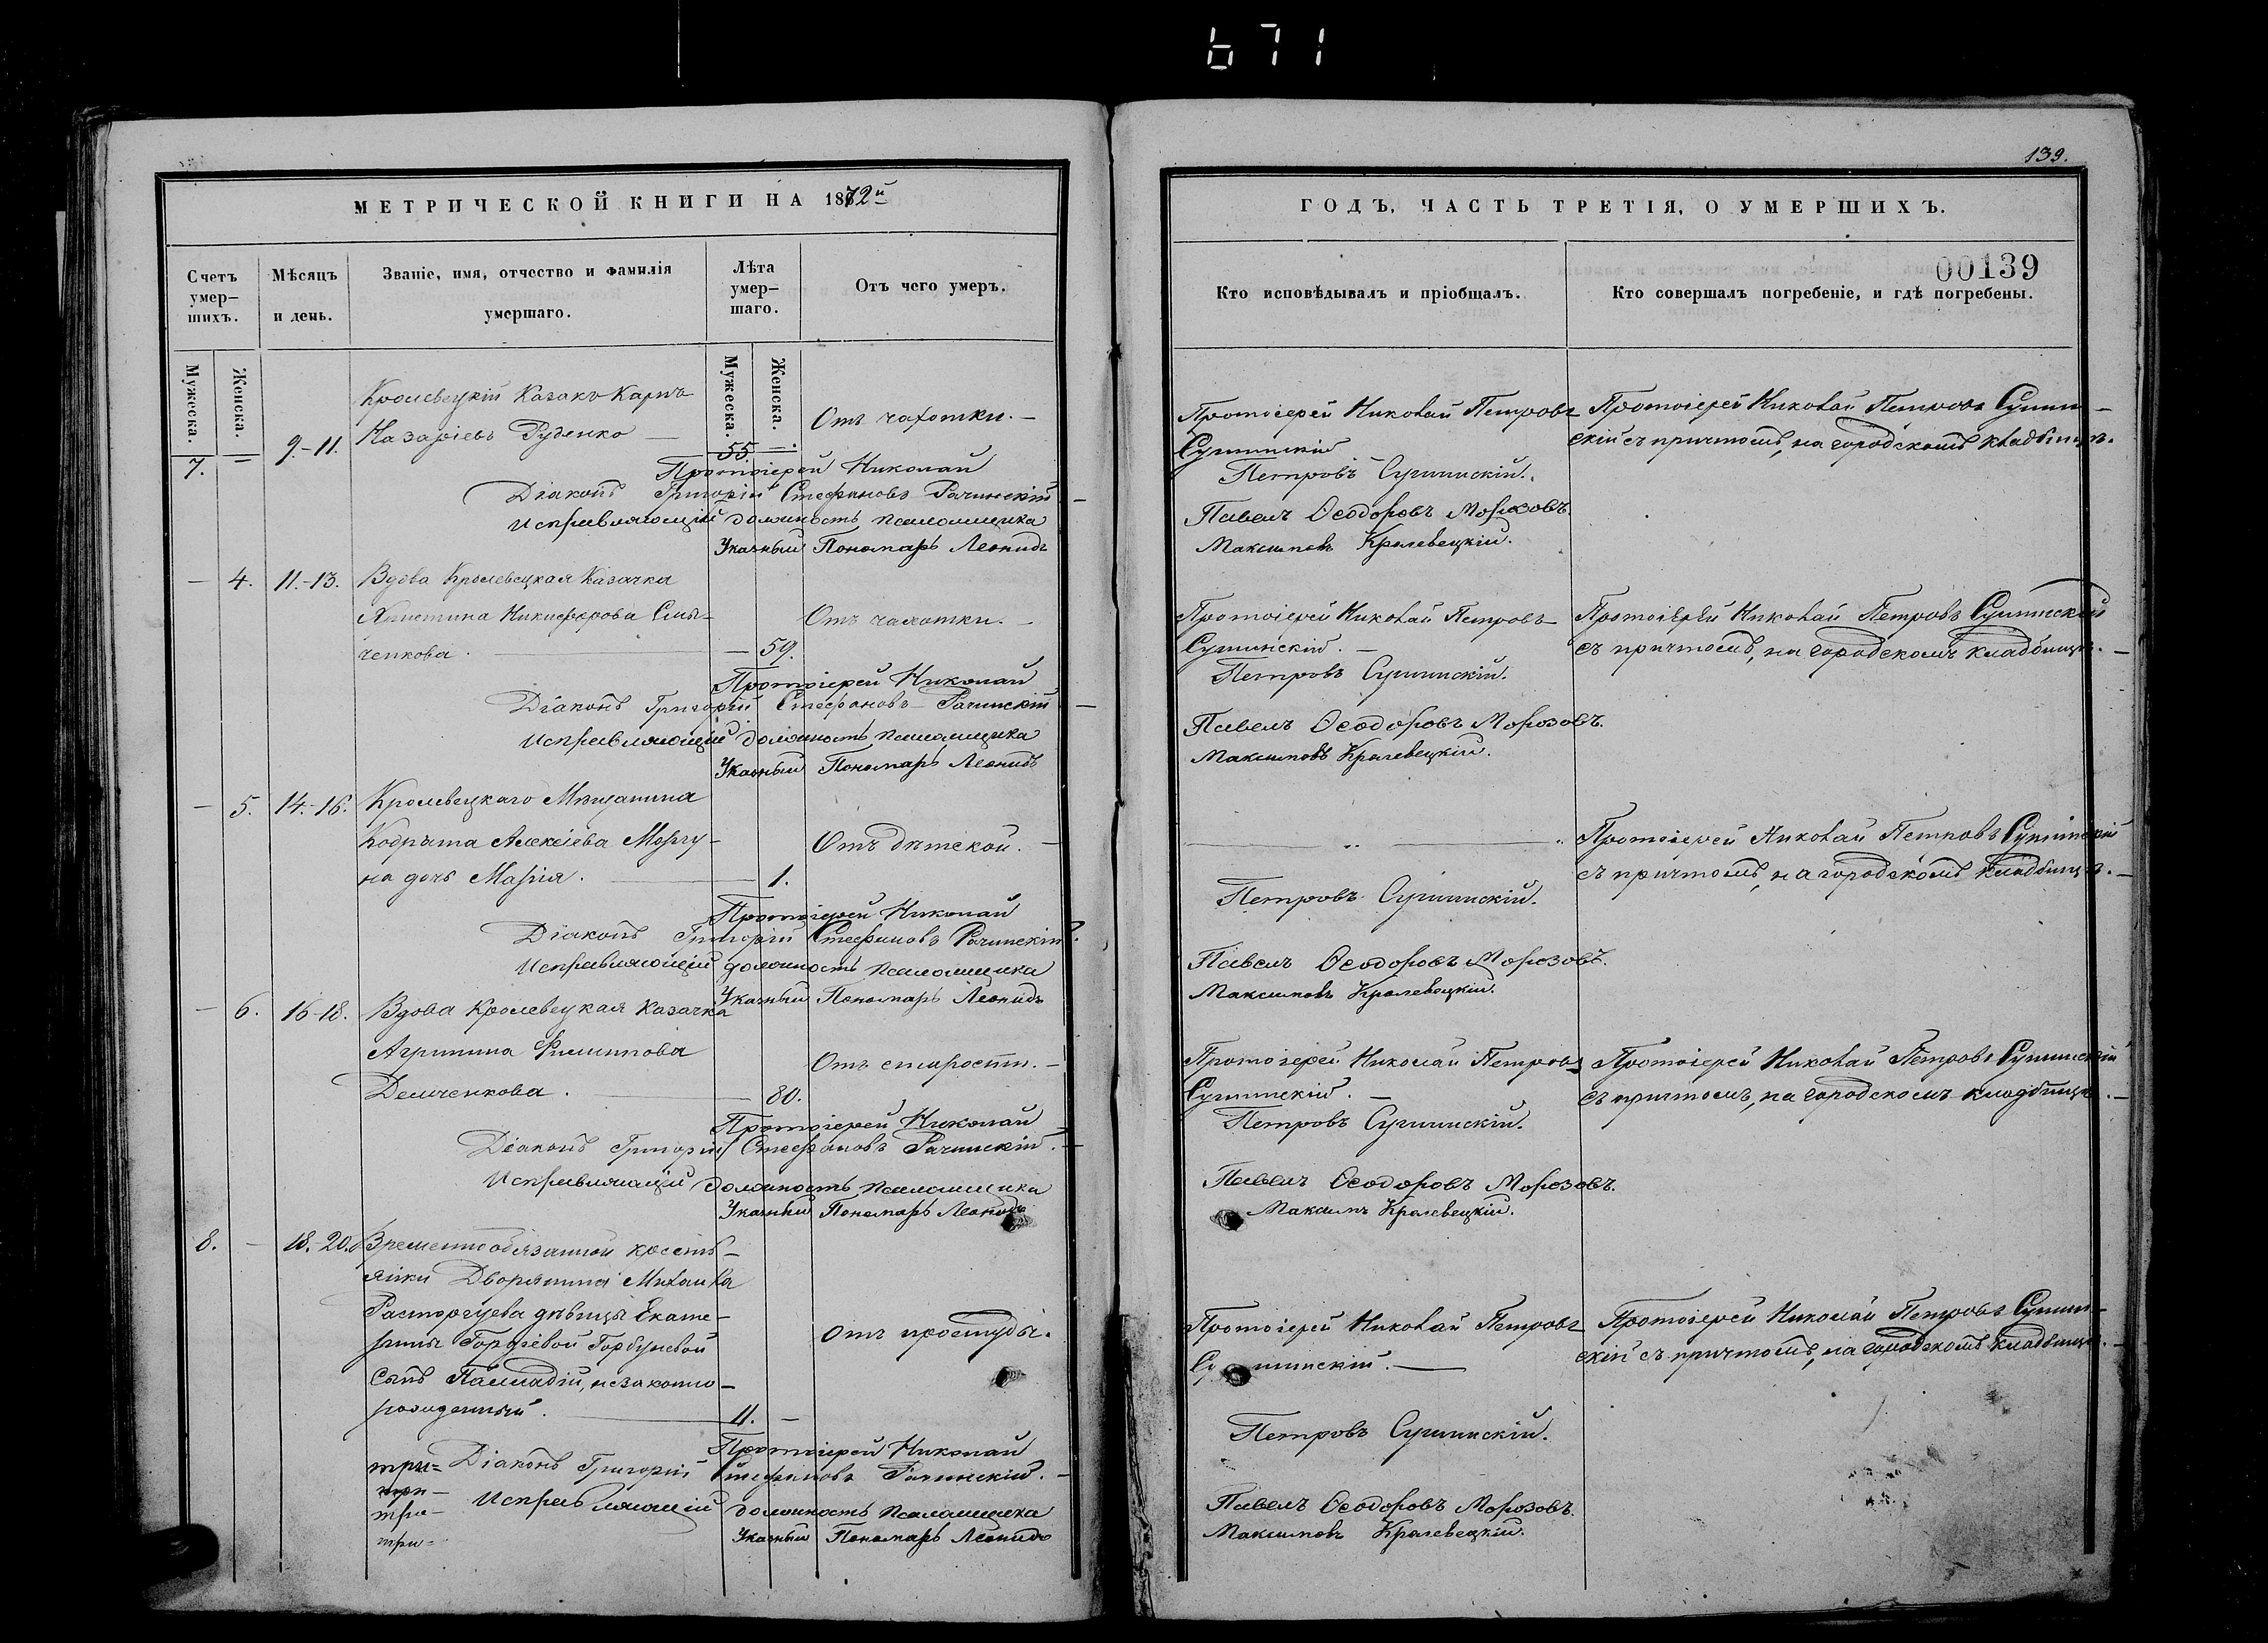 671
139.
МЕТРИЧЕСКОЙ КНИГИ НА 1872й
ГОДЪ, ЧАСТЬ ТРЕТІЯ, О УМЕРШИХЪ.
00139
Счетъ умер—шихъ.
Мужеска.
Женска.
Мѣсяцъ и день.
Званіе, имя, отчество и фамилія умершаго.
Лѣта умер—шаго.
Мужеска.
Женска.
Отъ чего умеръ.
Кто исповѣдывалъ и пріобщалъ.
Кто совершалъ погребеніе, и гдѣ погребены.
7. — 9.-11.
Кролевецкій Казакъ Карпъ
Назаріевъ Руденко —
55 —.
Отъ чахотки. —
Протоіерей Николай Петровъ
Сушинскій
Протоіерей Николай Петровъ Сушин—
скій съ причтомъ, на городскомъ кладбищѣ.
Протоіерей Николай Петровъ Сушинскій.
Діаконъ Григорій Стефановъ Рачинскій —
Исправляющій должность псаломщика Павелъ Ѳеодоровъ Морозовъ.
Указный Пономарь Леонидъ Максимовъ Кролевецкій.
— 4. 11.-13.
Вдова Кролевецкая Казачка
Христина Никифорова Смы—
ченкова. —
— 59.
Отъ чахотки. —
Протоіерей Николай Петровъ
Сушинскій. —
Протоіерей Николай Петровъ Сушинскій
съ причтомъ, на городскомъ кладбищѣ. —
Протоіерей Николай Петровъ Сушинскій.
Діаконъ Григорій Стефановъ Рачинскій —
Исправляющій должность псаломщика Павелъ Ѳеодоровъ Морозовъ.
Указный Пономарь Леонидъ Максимовъ Кролевецкій.
— 5. 14.-16.
Кролевецкаго Мѣщанина
Кодрата Алексіева Моргу—
на дочь Марія. —
1.
Отъ дѣтской. —
Протоіерей Николай Петровъ Сушинскій
съ причтомъ, на городскомъ кладбищѣ. —
Протоіерей Николай Петровъ Сушинскій.
Діаконъ Григорій Стефановъ Рачинскій.
Исправляющій должность псаломщика Павелъ Ѳеодоровъ Морозовъ.
Указный Пономарь Леонидъ Максимовъ Кролевецкій.
— 6. 16-18.
Вдова Кролевецкая Казачка
Агрипина Филиппова
Демченкова. —
— 80.
Отъ старости. —
Протоіерей Николай Петровъ
Сушинскій. —
Протоіерей Николай Петровъ Сушинскій
съ причтомъ, на городскомъ кладбищѣ. —
Протоіерей Николай Петровъ Сушинскій.
Діаконъ Григорій Стефановъ Рачинскій. —
Исправляющій должность псаломщика Павелъ Ѳеодоровъ Морозовъ.
Указный Пономарь Леонидъ Максимъ Кролевецкій.
8. — 18.-20.
Временнообязанной кресть—
янки Дворянина Михаила
Расторгуева дѣвицы Екате—
рины Гордіевой Горбуновой
сынъ Палладій, незаконно—
рожденный. —
11. —
Отъ простуды.
Протоіерей Николай Петровъ
Сушинскій. —
Протоіерей Николай Петровъ Сушин—
скій съ причтомъ, на городскомъ кладбищѣ. —
Протоіерей Николай Петровъ Сушинскій.
три= Діаконъ Григорій Стефановъ Рачинскій. —
три—
три— Исправляющій должность псаломщика Павелъ Ѳеодоровъ Морозовъ.
три= Указный Пономарь Леонидъ Максимовъ Кролевецкій.